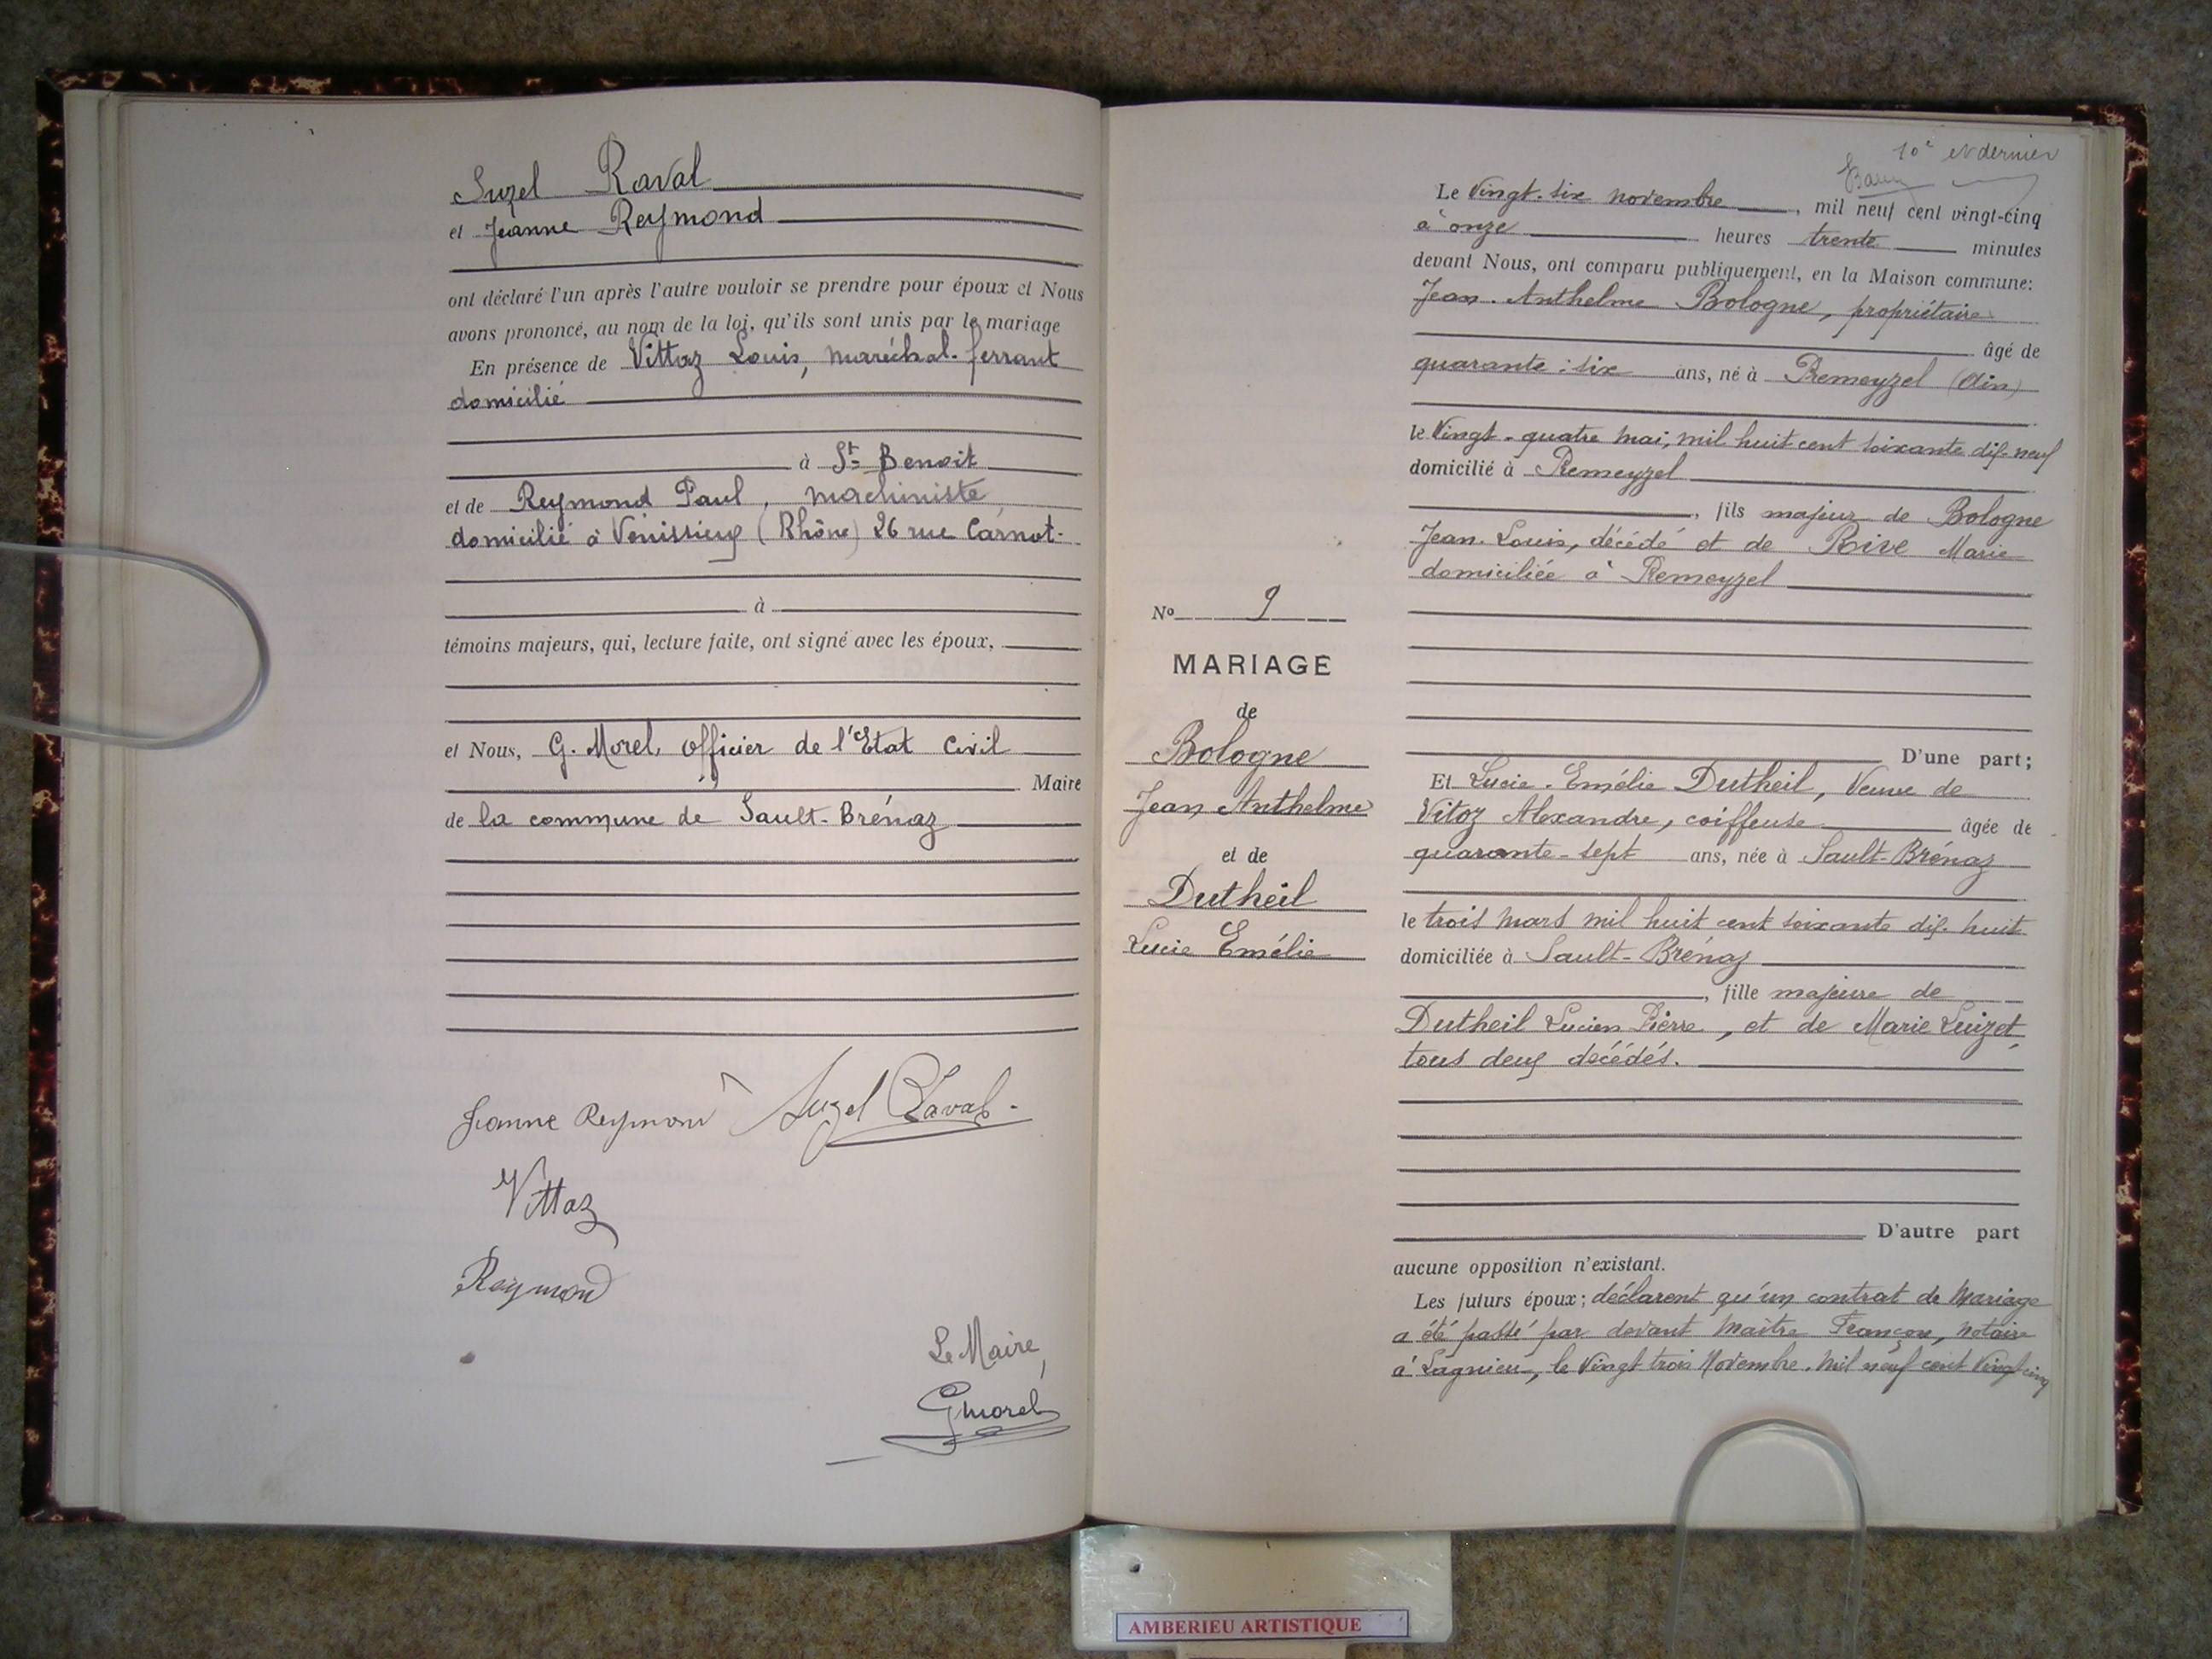 Suzel Raval
et Jeanne Reymond
ont déclaré l'un après l'autre vouloir se prendre pour époux et Nous
avons prononcé, au nom de la loi, qu'ils sont unis par le mariage
En présence de Vittoz Louis, maréchal-ferrant
domicilié
à St Benoit
et de Reymond Paul, machiniste
domicilié à Vénissieux (Rhône) 26 rue Carnot-
à
témoins majeurs, qui, lecture faite, ont signé avec les époux,
et Nous, G. Morel, officier de l'Etat Civil
Maire
de la commune de Sault-Brénaz
Jeanne Reymond Suzel Raval
Vittoz
Reymond
Le Maire,
GMorel
10e et dernier
Le Vingt-six novembre, mil neuf cent vingt-cinq
à onze heures trente minutes
devant Nous, ont comparu publiquement, en la Maison commune:
Jean-Anthelme Bologne, propriétaire
âgé de
quarante-six ans, né à Premeyzel (Ain)
le Vingt-quatre mai, mil huit cent soixante dix-neuf
domicilié à Premeyzel
, fils majeur de Bologne
Jean-Louis, décédé et de Rive Marie
domiciliée à Premeyzel
D'une part;
No 9
MARIAGE
de
Bologne
Jean Anthelme
et de
Dutheil
Lucie Emélie
Et Lucie-Emélie Dutheil, Veuve de
Vitoz Alexandre, coiffeuse âgée de
quarante-sept ans, née à Sault-Brénaz
le trois mars mil huit cent soixante dix-huit
domiciliée à Sault-Brénaz
, fille majeure de
Dutheil Lucien Pierre, et de Marie Luizet,
tous deux décédés.
D'autre part
aucune opposition n'existant.
Les futurs époux; déclarent qu'un contrat de Mariage
a été passé par devant Maître Françon, notaire
à Lagnieu, le Vingt trois Novembre mil neuf cent Vingt cinq
AMBERIEU ARTISTIQUE